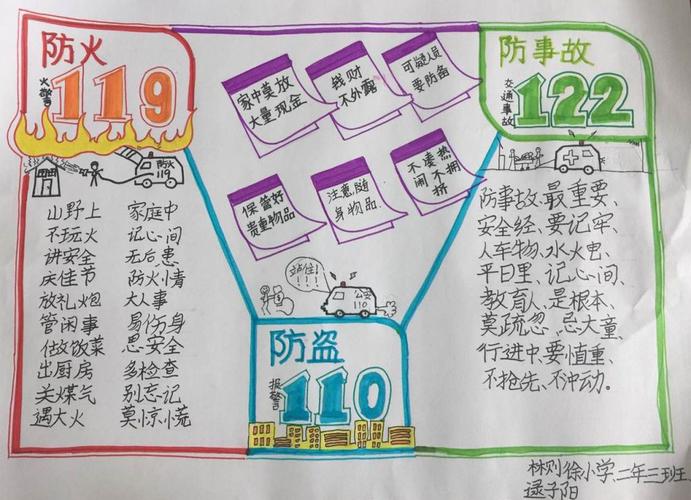 防火
火警
119
防火
119
山野上 家庭中
不玩火 记心间
讲安全 无后患
庆佳节 防火情
放礼火炮 大人事
管闲事 易伤身
做饭菜 思安全
出厨房 多检查
关煤气 别忘记
遇大火 莫惊慌
家中莫放
大量现金
钱财
不外露
可疑人员
要防备
保管好
贵重物品
注意随
身物品
不凑热
闹不拥
挤
站住!
!!!
公安
110
防盗
报警
110
防事故
交通事故
122
防事故、最重要、
安全经、要记牢、
人车物、水火电、
平日里、记心间、
教育人、是根本、
莫疏忽、忌大童、
行进中、要慎重、
不抢先、不冲动。
林则徐小学、二年三班
逯子阳